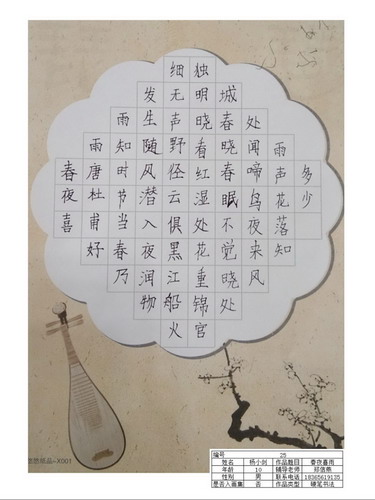 春夜喜
雨唐杜甫好
雨知时节当春乃
发生随风潜入夜润物
细无声野径云俱黑江船火
独明晓看红湿处花重锦官
城春晓春眠不觉晓处
处闻啼鸟夜来风
雨声花落知
多少
纸品-X001
编号 25
姓名 杨小剑 作品题目 春夜喜雨
年龄 10 辅导老师
性别 男 联系电话 18265619135
是否入画集 否 作品类型 硬笔书法